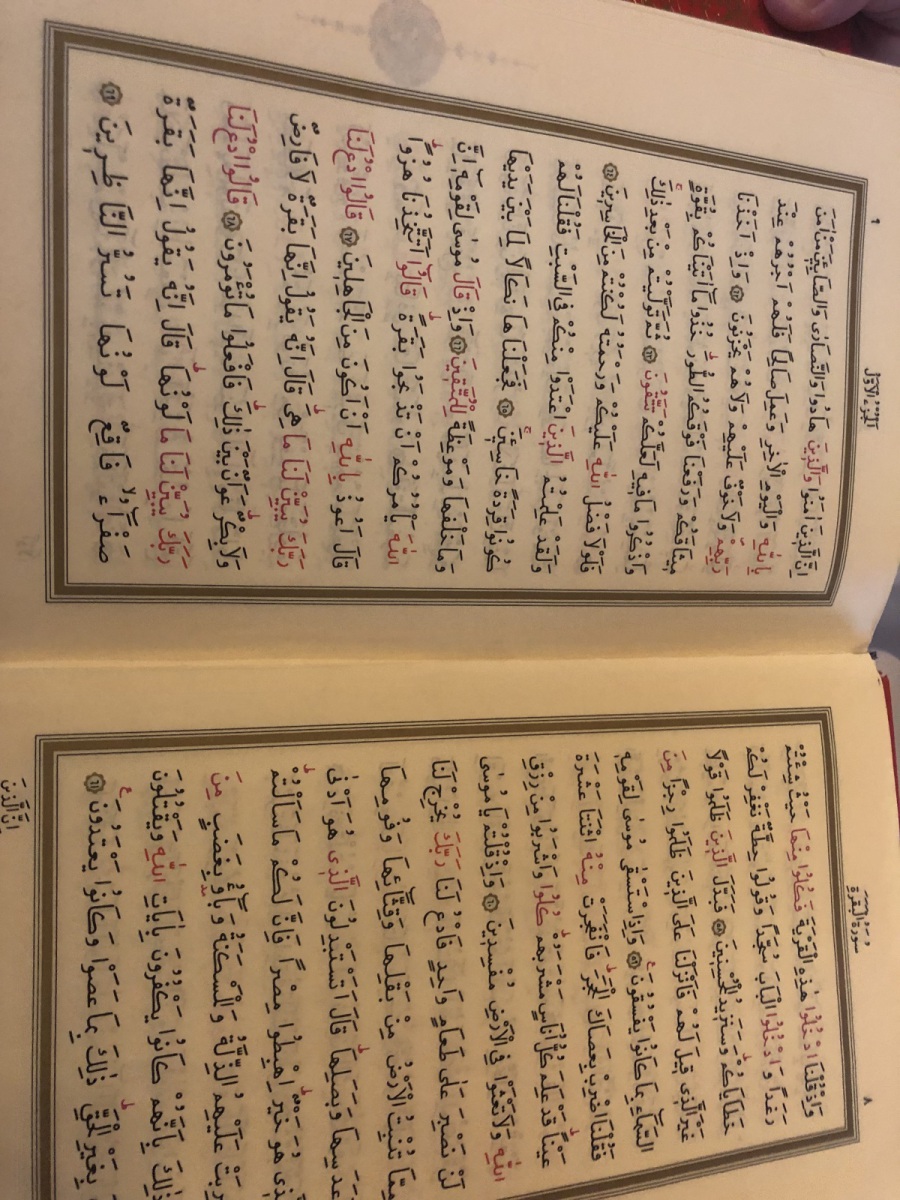 ٨ سُورَةُ الْبَقَرَةِ
وَاِذْ قُلْنَا ادْخُلُوا هٰذِهِ الْقَرْيَةَ فَكُلُوا مِنْهَا حَيْثُ شِئْتُمْ
رَغَداً وَادْخُلُوا الْبَابَ سُجَّداً وَقُولُوا حِطَّةٌ نَغْفِرْ لَكُمْ
خَطَايَاكُمْ وَسَنَزِيدُ الْمُحْسِنِينَ ﴿٥٨﴾ فَبَدَّلَ الَّذِينَ ظَلَمُوا قَوْلاً
غَيْرَ الَّذِي قِيلَ لَهُمْ فَاَنْزَلْنَا عَلَى الَّذِينَ ظَلَمُوا رِجْزاً مِنَ
السَّمَٓاءِ بِمَا كَانُوا يَفْسُقُونَ ﴿٥٩﴾ وَاِذِ اسْتَسْقٰى مُوسٰى لِقَوْمِهِ
فَقُلْنَا اضْرِبْ بِعَصَاكَ الْحَجَرَ فَانْفَجَرَتْ مِنْهُ اثْنَتَا عَشْرَةَ
عَيْناً قَدْ عَلِمَ كُلُّ اُنَاسٍ مَشْرَبَهُمْ كُلُوا وَاشْرَبُوا مِنْ رِزْقِ
اللّٰهِ وَلَا تَعْثَوْا فِي الْاَرْضِ مُفْسِدِينَ ﴿٦٠﴾ وَاِذْ قُلْتُمْ يَا مُوسٰى
لَنْ نَصْبِرَ عَلٰى طَعَامٍ وَاحِدٍ فَادْعُ لَنَا رَبَّكَ يُخْرِجْ لَنَا
مِمَّا تُنْبِتُ الْاَرْضُ مِنْ بَقْلِهَا وَقِثَّٓائِهَا وَفُومِهَا
عَدَسِهَا وَبَصَلِهَا قَالَ اَتَسْتَبْدِلُونَ الَّذِي هُوَ اَدْنٰى
هُوَ خَيْرٌ اِهْبِطُوا مِصْراً فَاِنَّ لَكُمْ مَا سَاَلْتُمْ
عَلَيْهِمُ الذِّلَّةُ وَالْمَسْكَنَةُ وَبَٓاؤُ بِغَضَبٍ مِنَ
ذٰلِكَ بِاَنَّهُمْ كَانُوا يَكْفُرُونَ بِاٰيَاتِ اللّٰهِ وَيَقْتُلُونَ
بِغَيْرِ الْحَقِّ ذٰلِكَ بِمَا عَصَوْا وَكَانُوا يَعْتَدُونَ ﴿٦١﴾
اِنَّ الَّذِينَ
اَلْجُزْءُ الْاَوَّلُ ٩
اِنَّ الَّذِينَ اٰمَنُوا وَالَّذِينَ هَادُوا وَالنَّصَارٰى وَالصَّابِـِٔينَ مَنْ اٰمَنَ
بِاللّٰهِ وَالْيَوْمِ الْاٰخِرِ وَعَمِلَ صَالِحاً فَلَهُمْ اَجْرُهُمْ عِنْدَ
رَبِّهِمْ وَلَا خَوْفٌ عَلَيْهِمْ وَلَا هُمْ يَحْزَنُونَ ﴿٦٢﴾ وَاِذْ اَخَذْنَا
مِيثَاقَكُمْ وَرَفَعْنَا فَوْقَكُمُ الطُّورَ خُذُوا مَٓا اٰتَيْنَاكُمْ بِقُوَّةٍ
وَاذْكُرُوا مَا فِيهِ لَعَلَّكُمْ تَتَّقُونَ ﴿٦٣﴾ ثُمَّ تَوَلَّيْتُمْ مِنْ بَعْدِ ذٰلِكَ
فَلَوْلَا فَضْلُ اللّٰهِ عَلَيْكُمْ وَرَحْمَتُهُ لَكُنْتُمْ مِنَ الْخَاسِرِينَ ﴿٦٤﴾
وَلَقَدْ عَلِمْتُمُ الَّذِينَ اعْتَدَوْا مِنْكُمْ فِي السَّبْتِ فَقُلْنَا لَهُمْ
كُونُوا قِرَدَةً خَاسِـِٔينَ ﴿٦٥﴾ فَجَعَلْنَاهَا نَكَالاً لِمَا بَيْنَ يَدَيْهَا
وَمَا خَلْفَهَا وَمَوْعِظَةً لِلْمُتَّقِينَ ﴿٦٦﴾ وَاِذْ قَالَ مُوسٰى لِقَوْمِهِ اِنَّ
اللّٰهَ يَأْمُرُكُمْ اَنْ تَذْبَحُوا بَقَرَةً قَالُٓوا اَتَتَّخِذُنَا هُزُواً
قَالَ اَعُوذُ بِاللّٰهِ اَنْ اَكُونَ مِنَ الْجَاهِلِينَ ﴿٦٧﴾ قَالُوا ادْعُ لَنَا
رَبَّكَ يُبَيِّنْ لَنَا مَا هِيَ قَالَ اِنَّهُ يَقُولُ اِنَّهَا بَقَرَةٌ لَا فَارِضٌ
وَلَا بِكْرٌ عَوَانٌ بَيْنَ ذٰلِكَ فَافْعَلُوا مَا تُؤْمَرُونَ ﴿٦٨﴾ قَالُوا ادْعُ لَنَا
رَبَّكَ يُبَيِّنْ لَنَا مَا لَوْنُهَا قَالَ اِنَّهُ يَقُولُ اِنَّهَا بَقَرَةٌ
صَفْرَٓاءُ فَاقِعٌ لَوْنُهَا تَسُرُّ النَّاظِرِينَ ﴿٦٩﴾